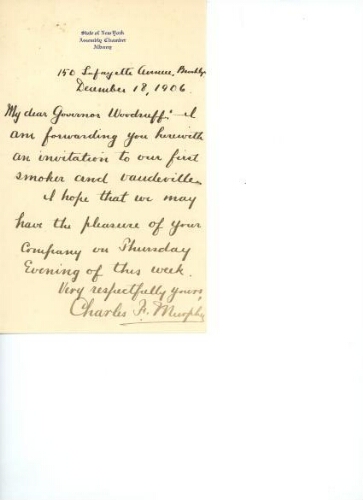 State of New York
Assembly Chamber
Albany
150 Lafayette Avenue, Brooklyn
December 18, 1906
My dear Governor Woodruff: I
am forwarding you herewith
an invitation to our first
smoker and vaudeville.
I hope that we may
have the pleasure of your
Company on Thursday
Evening of this week.
Very respectfully yours,
Charles F. Murphy